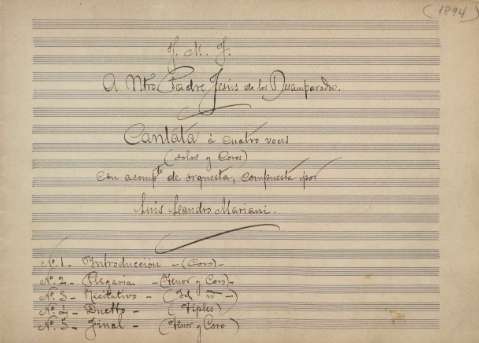 (1894)
J. M. J.
A Ntro. Padre Jesús de los Desamparados.
Cantata á cuatro voces
(solos y Coro)
con acompto. de orquesta, compuesta por
Luis Leandro Mariani.
Nº. 1. Introducción - (Coro) -
Nº. 2 - Plegaria - (Tenor y Coro) -
Nº. 3 - Recitativo - (Id. -)
Nº. 4 - Duetto - (Tiples)
Nº. 5 - Final - (Tenor y Coro)